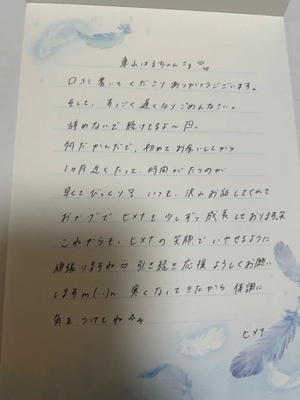 車山はるちゃんさま♡
口コミ書いてくださりありがとうございます。
そして、すっごく遅くなりごめんなさい。
辞めないで続けてるよ〜
何だかんだで、初めてお会いしてから
1ヶ月近くたって、時間がたつのが
早くてびっくり!! いつも、沢山お話してくれて
おかげでヒメナも少しずつ成長しております笑
これからも、ヒメナの笑顔でいやせるように
頑張りますね♡ 引き続き応援よろしくお願い
しますm(..)m 寒くなってきたから体調に
気をつけてね
ヒメナ